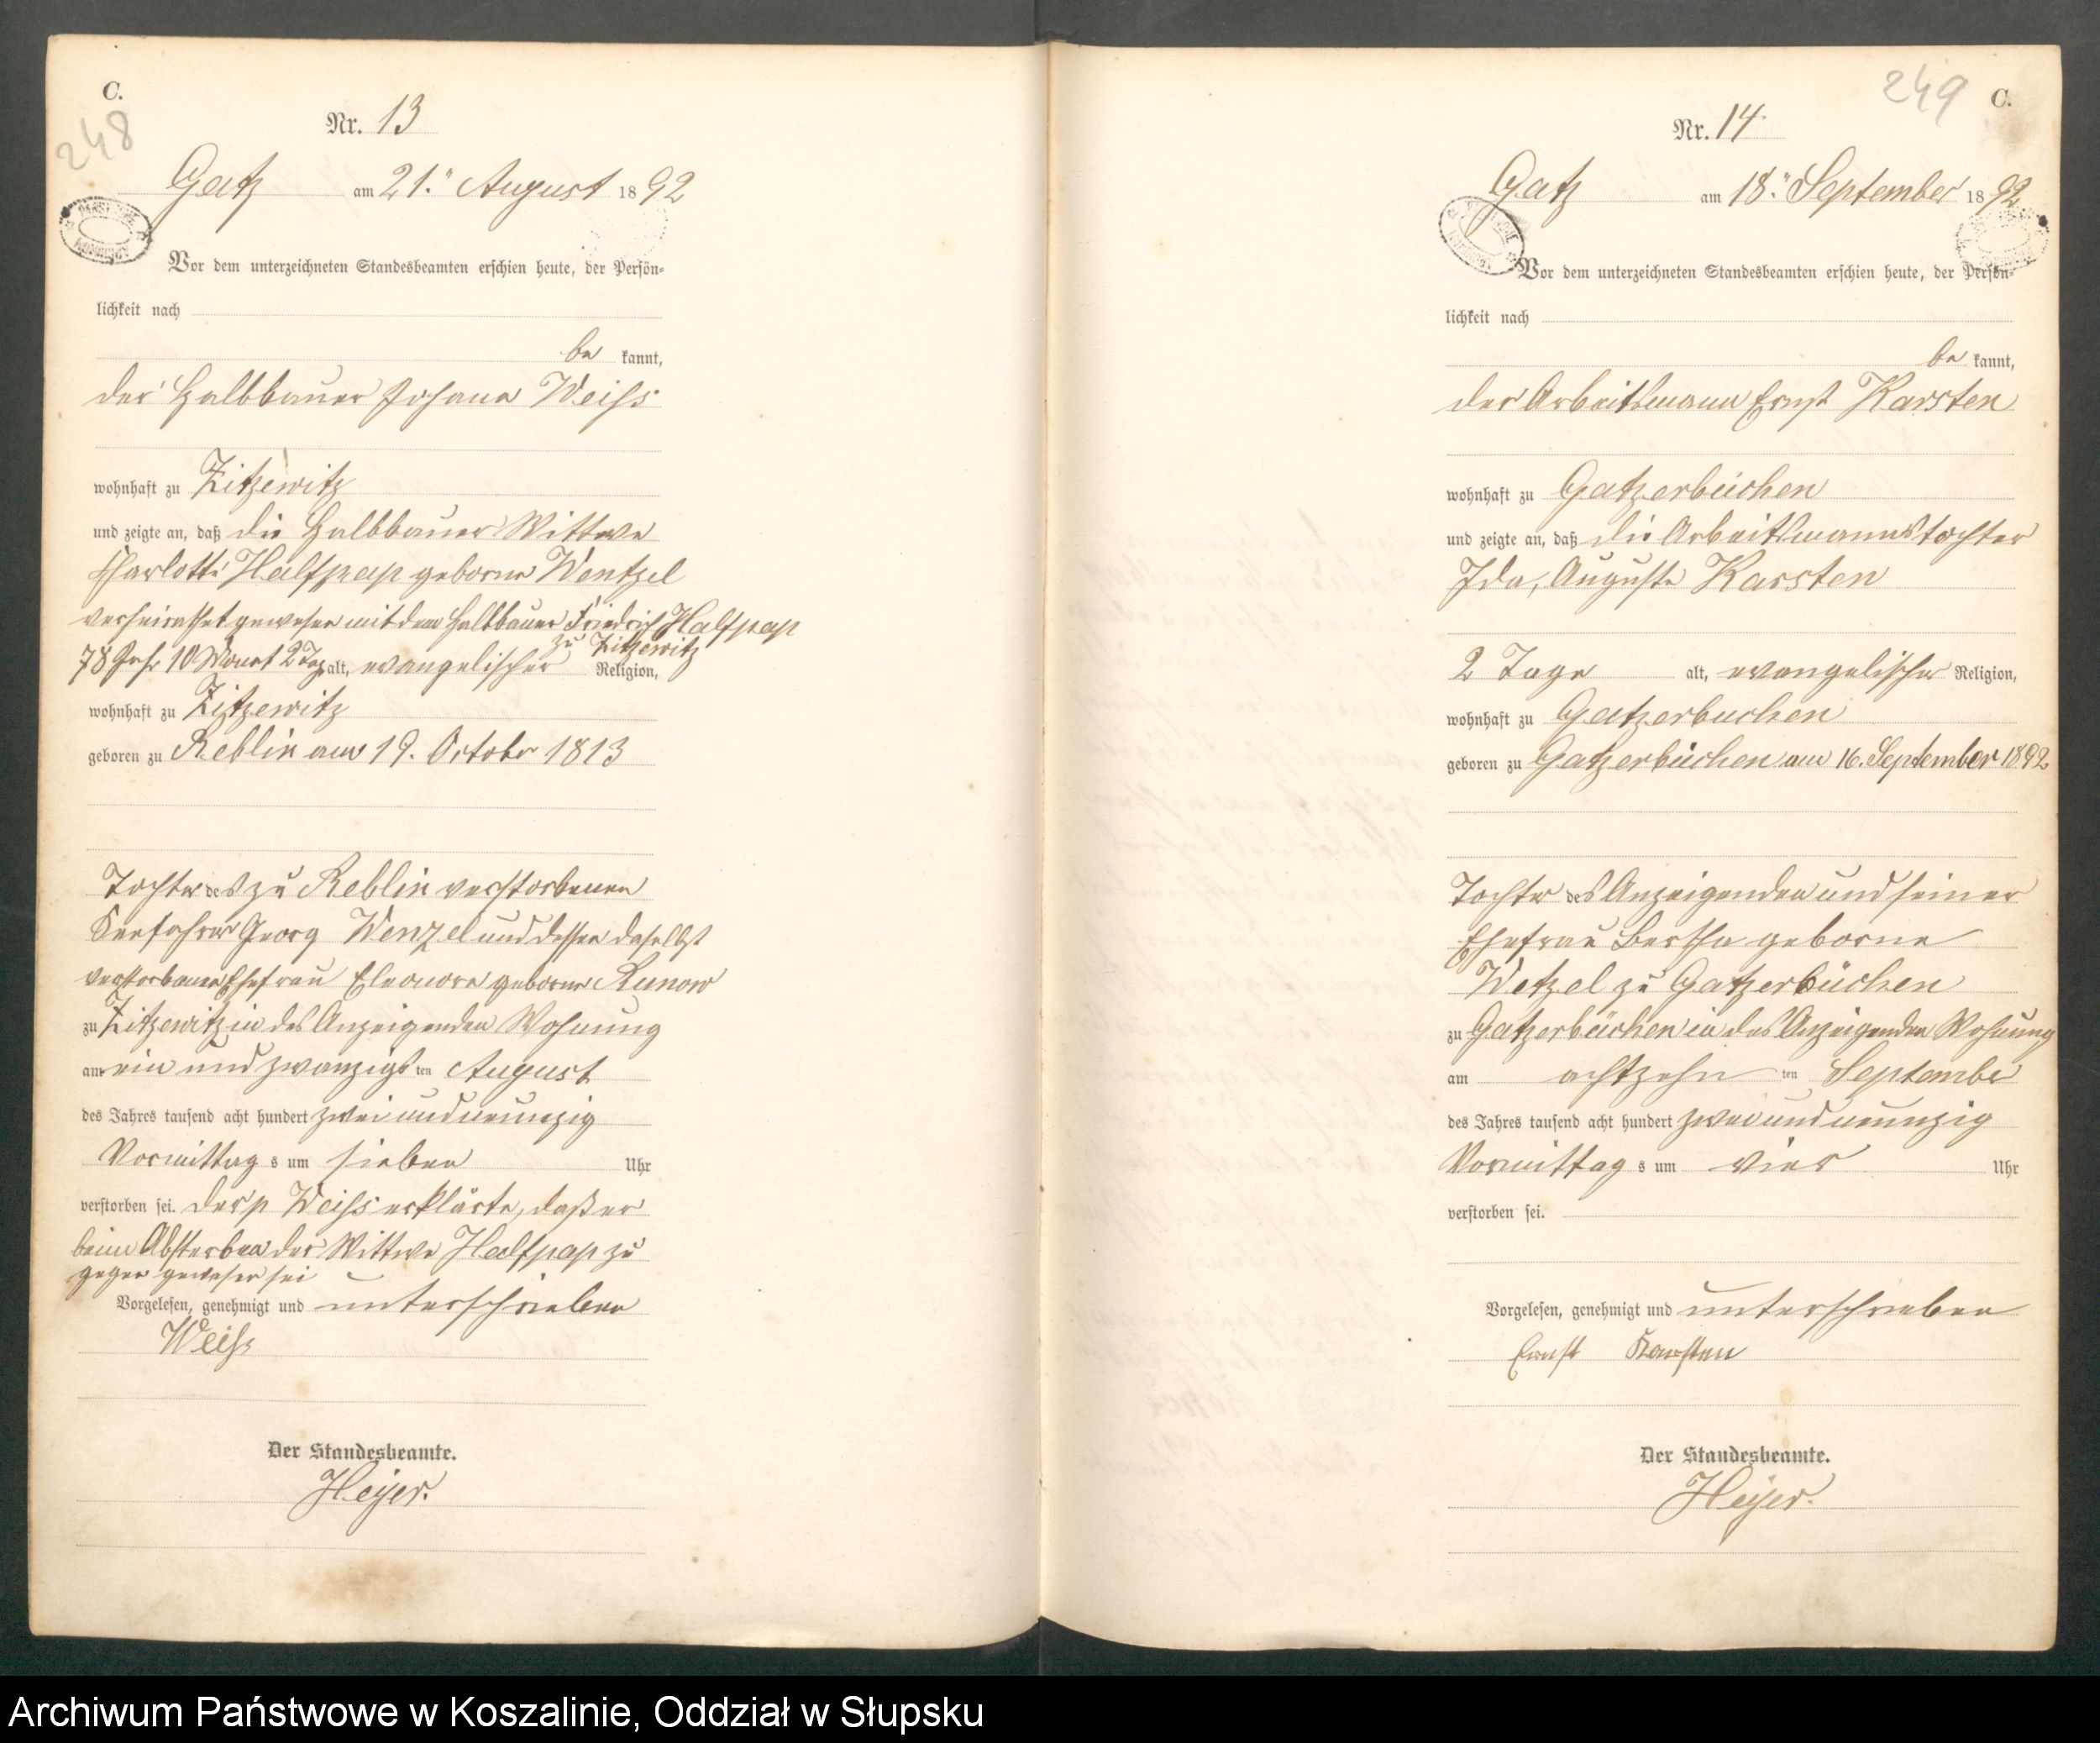 C.
248
Nr. 13
Gatz am 21.ⁿ August 1892
Vor dem unterzeichneten Standesbeamten erschien heute, der Persön-
lichkeit nach
be kannt,
der Halbbauer Johann Weiss
wohnhaft zu Zitzewitz
und zeigte an, daß die Halbbauer Wittwe
Charlotte Halfpap geborne Wentzel
verheirathet gewesen mit dem Halbbauer Friedrich Halfpap
zu Zitzewitz
78 Jahr 10 Monat 2 Tag alt, evangelischer Religion,
wohnhaft zu Zitzewitz
geboren zu Reblin am 19. October 1813
Tochter des zu Reblin verstorbenen
Georg Wenzel und dessen daselbst
verstorbenen Ehefrau Eleonore geborne Kunow
zu Zitzewitz in des Anzeigenden Wohnung
am ein und zwanzigs ten August
des Jahres tausend acht hundert zwei und neunzig
Vormittag s um sieben Uhr
verstorben sei. der p Weiss erklärte, daß er
beim Absterben der Wittwe Halfpap zu
gegen gewesen sei
Vorgelesen, genehmigt und unterschrieben
Weiss
Der Standesbeamte.
Heyer.
249
C.
Nr. 14
Gatz am 18.ⁿ September 1892
Vor dem unterzeichneten Standesbeamten erschien heute, der Persön-
lichkeit nach
be kannt,
der Arbeitsmann Ernst Karsten
wohnhaft zu Gatzerbüchen
und zeigte an, daß die Arbeitsmannstochter
Ida, Auguste Karsten
2 Tage alt, evangelischer Religion,
wohnhaft zu Gatzerbuchen
geboren zu Gatzerbüchen am 16. September 1892
Tochter des Anzeigenden und seiner
Ehefrau Bertha geborne
Wetzel zu Gatzerbüchen
zu Gatzerbüchen in des Anzeigenden Wohnung
am achtzehn ten September
des Jahres tausend acht hundert zwei und neunzig
Vormittag s um vier Uhr
verstorben sei.
Vorgelesen, genehmigt und unterschrieben
Ernst Karsten
Der Standesbeamte.
Heyer.
Archiwum Państwowe w Koszalinie, Oddział w Słupsku